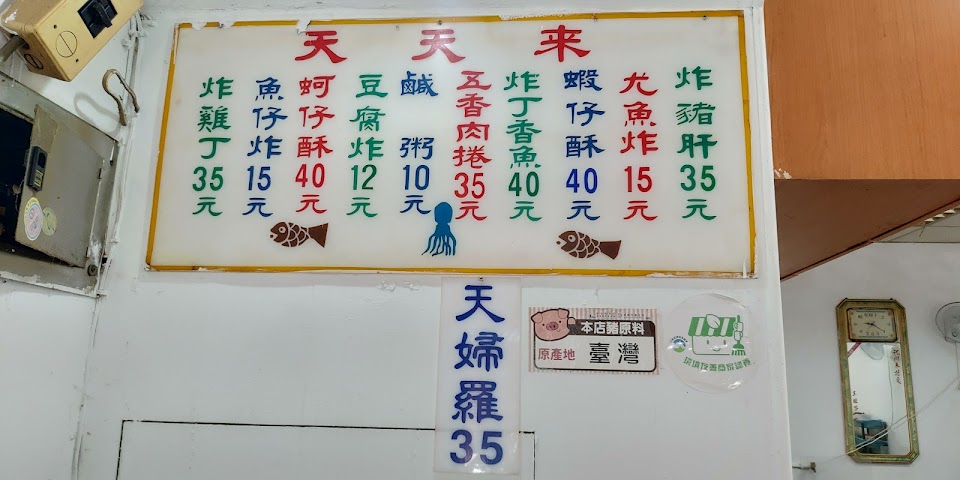 天天来
炸豬肝35元
尤魚炸15元
蝦仔酥40元
炸丁香魚40元
五香肉捲35元
鹹粥10元
豆腐炸12元
蚵仔酥40元
魚仔炸15元
炸雞丁35元
天婦羅35
本店豬原料
原產地
臺灣
環境友善商家認養